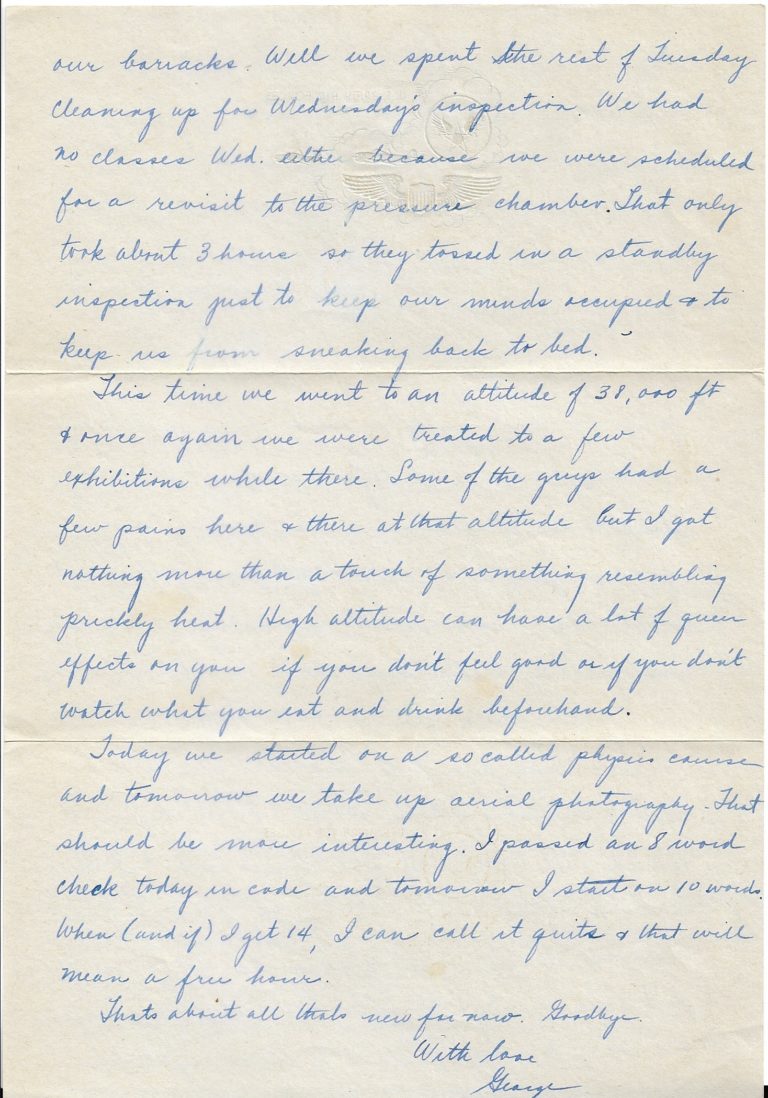 our barracks. Well we spent the rest of Tuesday
cleaning up for Wednesday's inspection. We had
no classes Wed. either because we were scheduled
for a revisit to the pressure chamber. That only
took about 3 hours so they tossed in a standby
inspection just to keep our minds occupied & to
keep us from sneaking back to bed.
This time we went to an altitude of 38,000 ft
& once again we were treated to a few
exhibitions while there. Some of the guys had a
few pains here & there at that altitude but I got
nothing more than a touch of something resembling
prickly heat. High altitude can have a lot of queer
effects on you if you don't feel good or if you don't
watch what you eat and drink beforehand.
Today we started on a so called physics course
and tomorrow we take up aerial photography. That
should be more interesting. I passed an 8 word
check today in code and tomorrow I start on 10 words.
When (and if) I get 14, I can call it quits & that will
mean a free hour.
Thats about all thats new for now. Goodbye.
With love
George